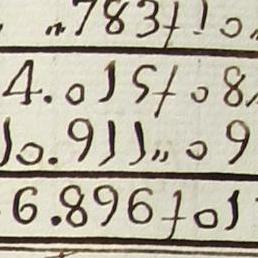 „783ƒ10
4.015ƒ08
10.911„09
6.896ƒ01